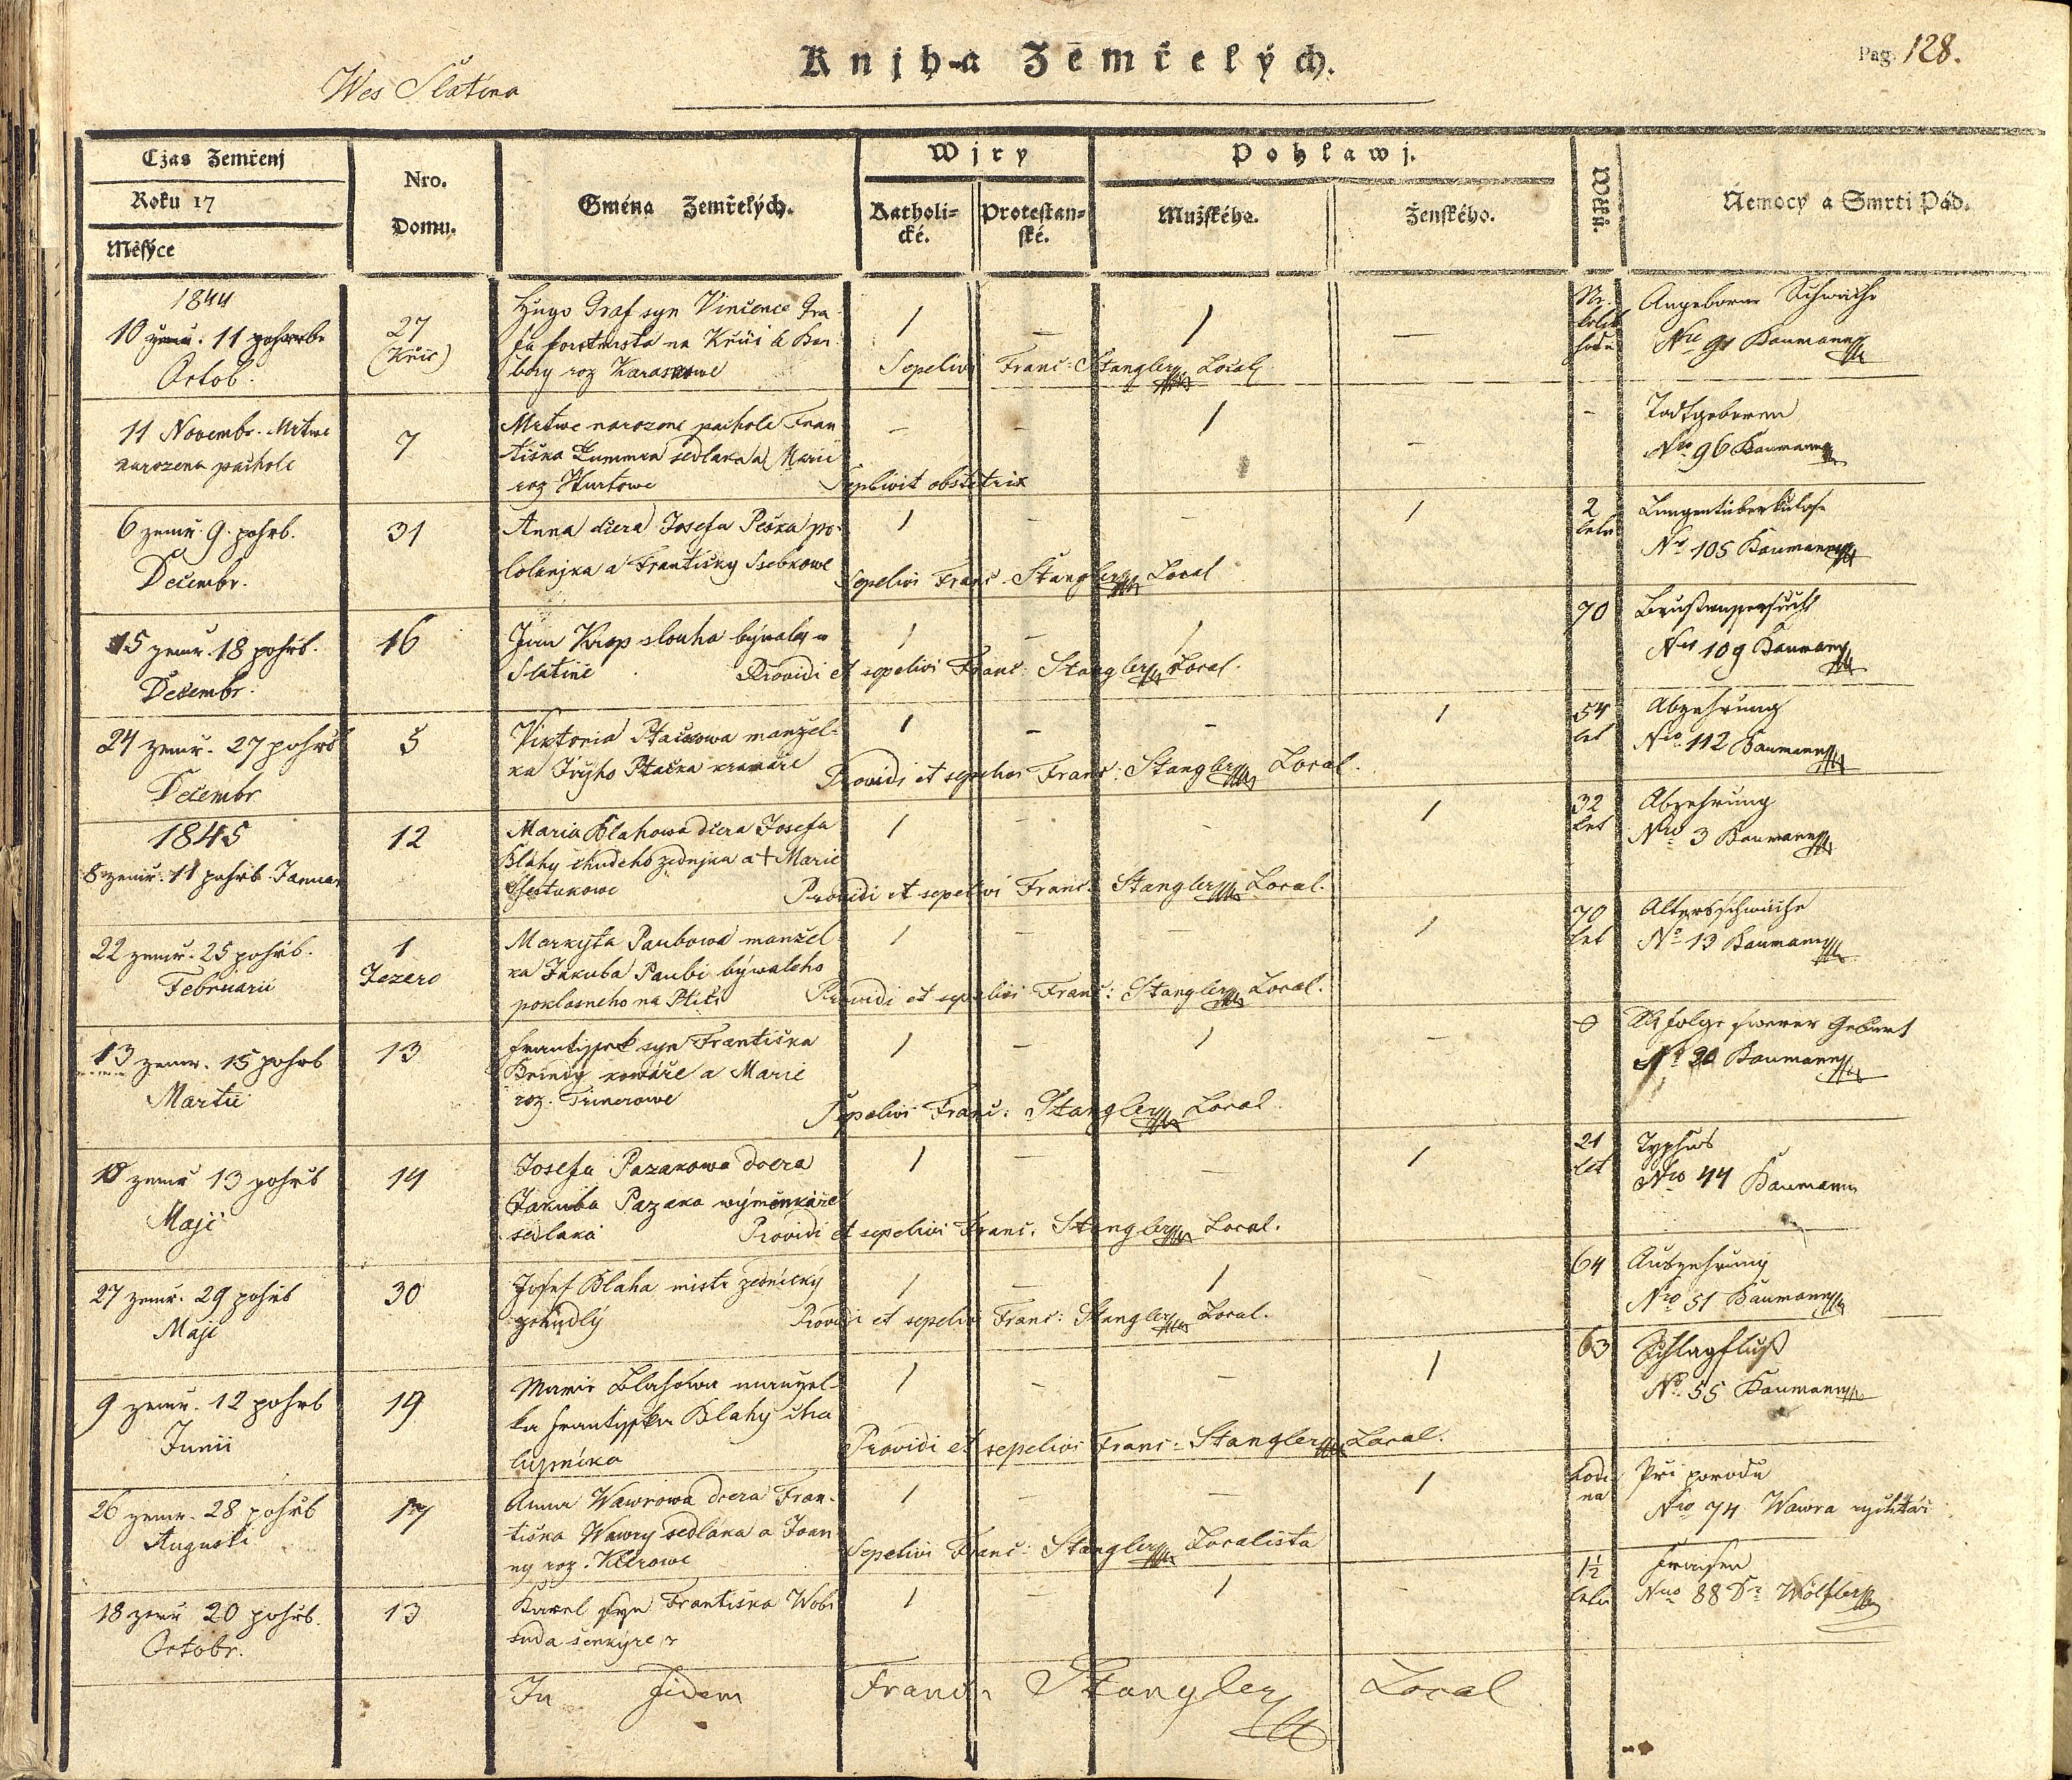 Wes Slatina
Knjha Zemřelých.
Pag. 128.
Cžas Zemřenj
Roku 17
Měsýce
Nro.
Domu.
Gména Zemřelých.
Wjry
Katholi=
cké.
Protestan=
ské.
Pohlawj.
Mužského.
Ženského.
Wěků.
Nemocy a Smrti Pád.
1844
10 zemř. 11 pohrb
Octob.
27
(Křič)
Hugo Graf syn Vincence Gra
fa na Křiči a Bar
bory roz Karaskowe
1 – 1 –
Sepelivi Franc: Stangler Local
Angeborne Schwäche
Nro 91 Baumann
11 Novembr. Mrtwe
narozene pachole
7
Mrtwe narozene pachole Fran
tiška sedlaka a Marie
roz Kurtowe
– – 1 –
Sepelivit obstetrix
–
Todtgeboren
Nro 96 Baumann
6 zemř. 9. pohrb.
Decembr.
31
Anna dcera Josefa Peška po-
lolanjka a Františky Ssebkowe
1 – – 1
Sepelivi Franc. Stangler Local
2
leta
Lungentuberkulose
Nro 105 Baumann
15 zemř. 18 pohřb.
Decembr.
16
Jan Krop slouha býwalý w
Slatině
1 – 1
Providi et sepelivi Franc: Stangler Local.
70
Brustwassersucht
Nro 109 Baumann
24 zemř. 27 pohrb
Decembr
5
Viktoria Ptačkowa manžel-
ka Jiřýho Ptačka
1 – – 1
Providi et sepelivi Franc: Stangler Local.
54
let
Abzehrung
Nro 112 Baumann
1845
8 zemř. 11 pohrb. Januar
12
Maria Blahowa dcera Josefa
Blahy chudeho zednjka a † Marie
1 – – 1
Providi et sepelivi Franc: Stangler Local.
32
let
Abzehrung
Nro 3 Baumann
22 zemř. 25 pohřb.
Februarii
1
Jezero
Markyta Paubowa manžel
ka Jakuba Paubi býwaleho
poklasneho na Ptiči
1 – – 1
Providi et sepelivi Franc: Stangler Local.
70
let
Altersschwäche
Nro 13 Baumann
13 zemř. 15 pohrb
Martii
13
Frantissek syn Františka
Brindy kowáře a Marie
roz. Trinerowe
1 – 1 –
Sepelivi Franc: Stangler Local
0
folge schwerer Geburt
Baumann
10 zemř 13 pohřb
Maji
14
Josefa Pazakowa dcera
Jakuba Pazaka wýměnkáře
sedlaka
1 – – 1
Providi et sepelivi Franc: Stangler Local.
21
let
Typhus
Nro 44 Baumann
27 zemř. 29 pohřb
Maji
30
Josef Blaha mistr zednický
zchudlý
1 – 1 –
Providi et sepelivi Franc: Stangler Local.
64
Auszehrung
Nro 51 Baumann
9 zemř. 12 pohrb
Junii
19
Marie Blahowa manžel-
ka Frantisska Blahy cha
lupníka
1 – – 1
Providi et sepelivi Franc: Stangler Local.
63
Schlagfluß
Nro. 55 Baumann
26 zemř. 28 pohřb
Augusti
17
Anna Wawrowa dcera Fran-
tiška Wawry sedláka a Joan
ny roz.
1 – – 1
Sepelivi Franc: Stangler Localista
hodi
na
Při porodu
Nro 74 Wawra rychtář
18 zemř 20 pohřb.
Octobr.
13
Karel syn Františka Wobi
suda šenkýře
1 – 1 –
1½
leta
Fraisen
Nro 88 Dr Wölfler
Franc: Stangler Local